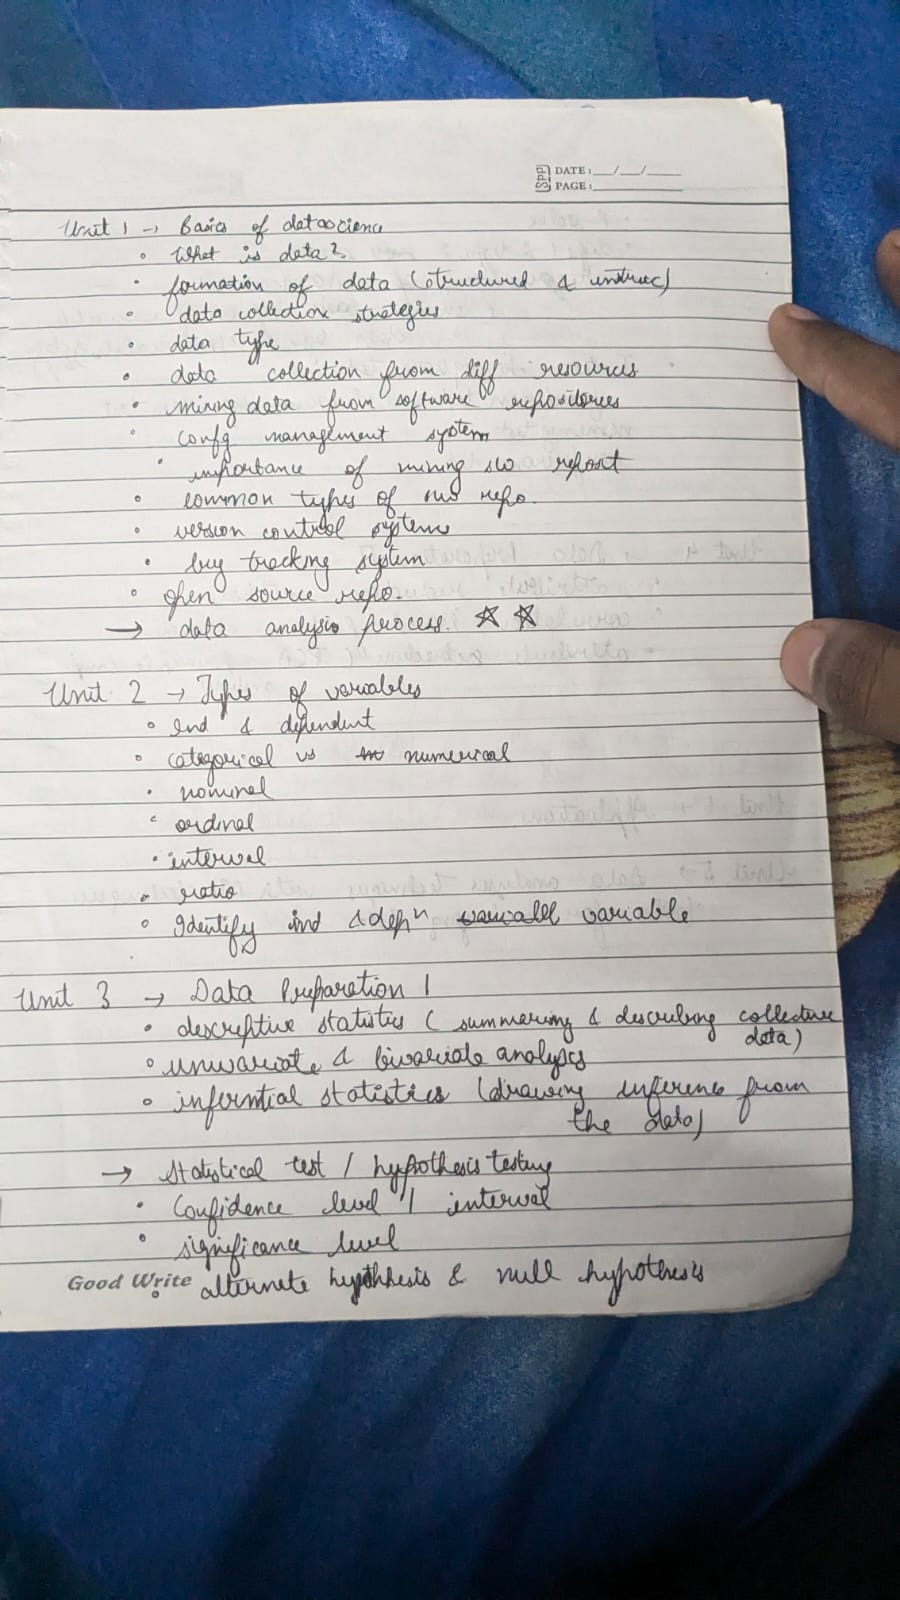 SPP DATE: __/__/____
PAGE: ________
Unit 1 → Basics of datascience
• What is data?
• formation of data (structured & unstruc)
• data collection strategies
• data type
• data collection from diff resources
• mining data from software repositories
• config management system
• importance of mining sw report
• common types of repo.
• version control systems
• bug tracking system
• open source repo.
→ data analysis process. ☆ ☆
Unit 2 → Types of variables
• ind & dependent
• categorical vs numerical
• nominal
• ordinal
• interval
• ratio
• Identify ind & depn variable
Unit 3 → Data Preparation 1
• descriptive statistics ( summarising & describing collective
data)
• univariate & bivariate analysis
• inferntial statistics (drawing inference from
the data)
→ Statistical test / hypothesis testing
• Confidence level / interval
• significance level
Good Write • alternate hypothesis & null hypothesis